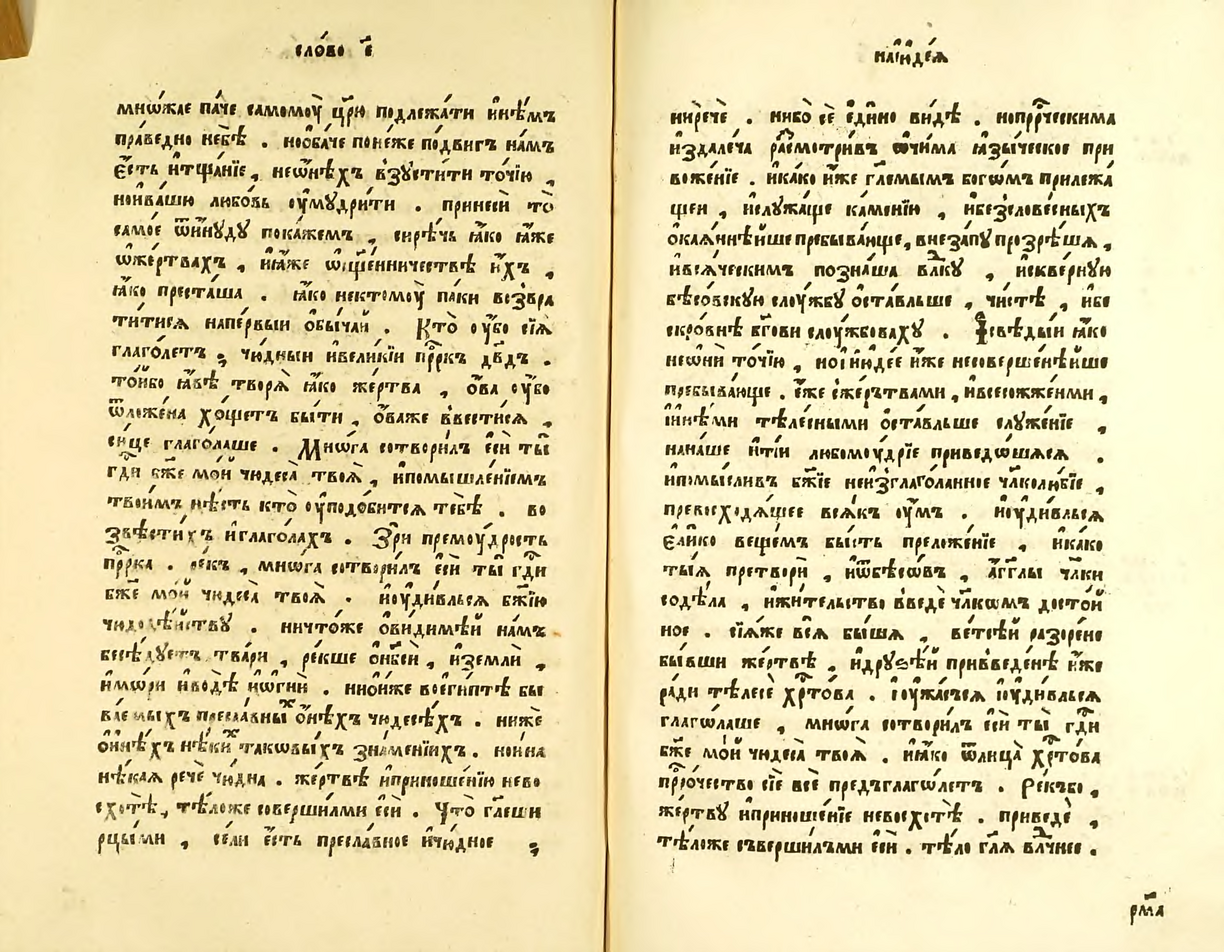 сло́во е҃
мнѡ́жае па́че самомоу̀ цр҃ю подлежа́ти и҆нѣ́мъ
пра́ведно не́бѣ . нооба́че поне́же по́двигъ на́мъ
є҆́сть и҆тща́нїе , неѡ҆нѣ́хъ въ꙳зꙋстити то́чїю ,
ноива́шю любо́вь оумꙋдри́ти . принеси́ то̀
само́е ѿи҆нꙋ́дꙋ пока́жемъ , сирѣ́чь ꙗ҆́ко ꙗ҆́же
ѡ҆же́ртвахъ , и҆ꙗ҆́же ѡ҆сщ҃е́нничествѣ и҆́хъ ,
ꙗ҆́ко преста́ша . ꙗ҆́ко нектомоу̀ па́ки возвра
ти́тися напе́рвыи ѻ҆бы́чай . Кто̀ оу҆́бо сїѧ̀
глаго́летъ ; чю́дныи ивели́кїи прⷪ҇ркъ дв҃дъ .
то́ибо ꙗ҆́вѣ творѧ̀ ꙗ҆́ко же́ртва , ѻ҆́ва оу҆́бо
ѿложе́на хо́щетъ бы́ти , ѻ҆́важе ввести́сѧ ,
си́це глаго́лаше . Мнѡ́га сотвори́лъ є҆сѝ ты̀
гдⷭ҇и бж҃е мо́й чюдеса̀ твоѧ̀ , и҆помышле́нїемъ
твои́мъ нѣ́сть кто̀ оу҆подо́битсѧ тебѣ̀ . во
звѣсти́хъ и҆глаго́лахъ . Зри́ премоу́дрость
прⷪ҇рка . ре́къ , мнѡ́га сотвори́лъ є҆сѝ ты̀ гдⷭ҇и
бж҃е мо́й чюдеса̀ твоѧ̀ . и҆оу҆диви́вься бж҃їю
чюдодѣ́йствꙋ . ничто́же ѻ҆ви́димѣй на́мъ
бесѣ́дꙋетъ тва́ри , ре́кше ѻ҆нб҃сѝ , и҆землѝ ,
и҆мо́ри и҆водѣ̀ и҆ѡ҆гнѝ . нио҆́иже воегѵ́птѣ бы
вае́мыхъ пресла́вныхъ ѻ҆́нѣхъ чюдесѣ́хъ . ниже
ѻ҆и҆нѣ́хъ нѣ́кихъ такѡвы́хъ зна́менїихъ . нои҆на
нѣ́каѧ речѐ чю́дна . же́ртвѣ и҆приноше́нїю нево
схотѣ̀ , тѣ́ложе соверши́лми є҆сѝ . Что̀ гл҃еши
рцы́ми , се́ли є҆́сть пресла́вное и҆чю́дное ;
наїꙋде́ѧ
ниречѐ . нибо сѐ є҆ди́но ви́дѣ . нопрⷪ҇рческима
и҆здале́ча ра́смотривъ ѻ҆чи́ма ꙗ҆зы́ческое при
воже́нїе . и҆ка́ко и҆́же гл҃емымъ богѡ́мъ прилежа́
щеи , ислꙋжа́ще ка́менїю , и҆безслове́сныхъ
ѻ҆каѧ́ннѣйше пребыва́юще, внеза́пꙋ прозрѣ́шѧ ,
и҆всѧ́ческимъ позна́ша влⷣкꙋ , и҆скве́рнꙋю
бѣсо́вскꙋю слоу́жбꙋ ѻ҆ста́вльше , чи́стѣ , и҆бе
скро́внѣ бг҃ови слоужбоваху . И҆свѣ́дый ꙗ҆́ко
неѡ҆ни́ то́чїю , ної҆ꙋде́е и҆́же несоверше́нѣйше
пребыва́юще . є҆́же сже́рътвами , и҆всесожже́ними ,
и҆и҆нѣ́ми тѣле́сными ѻ҆ста́вльше слꙋже́нїе ,
нана́ше и҆тѝ любомоу́дрїе приведѡ́шасѧ .
и҆помы́сливъ бж҃їе неизглаго́ланное чл҃колю́бїе ,
превосходѧ́щее всѧ́къ оу҆́мъ . и҆оу҆диви́вься
є҆ли́ко ве́щемъ бы́сть преложе́нїе , и҆ка́ко
тыѧ̀ претворѝ , и҆ѿбѣсѡ́въ , а҆́гг҃лы чл҃ки
содѣ́ла , и҆жи́тельство введѐ чл҃кѡмъ досто́й
ное . сїѧ́же всѧ̀ бы́шѧ , ве́тсѣй разоре́не
бы́вши же́ртвѣ , и҆дрꙋзѣ́й приведе́нѣ и҆́же
ра́ди тѣлесѐ хрⷭ҇това . и҆оу҆жа́сьсѧ и҆оу҆диви́вься
глаго́лаше , мнѡ́га сотвори́лъ є҆сѝ ты̀ гдⷭ҇и
бж҃е мо́й чюдеса̀ твоѧ̀ . и҆ꙗ҆́ко ѿлица̀ хрⷭ҇това
прⷪ҇рочество сїѐ всѐ предъглаго́летъ . Ре́къбо ,
же́ртвꙋ и҆приноше́нїе невосхотѣ̀ . приведѐ ,
тѣ́ложе съверши́лъми є҆сѝ . тѣ́ло гл҃ѧ влⷣчнее .
рм҃а